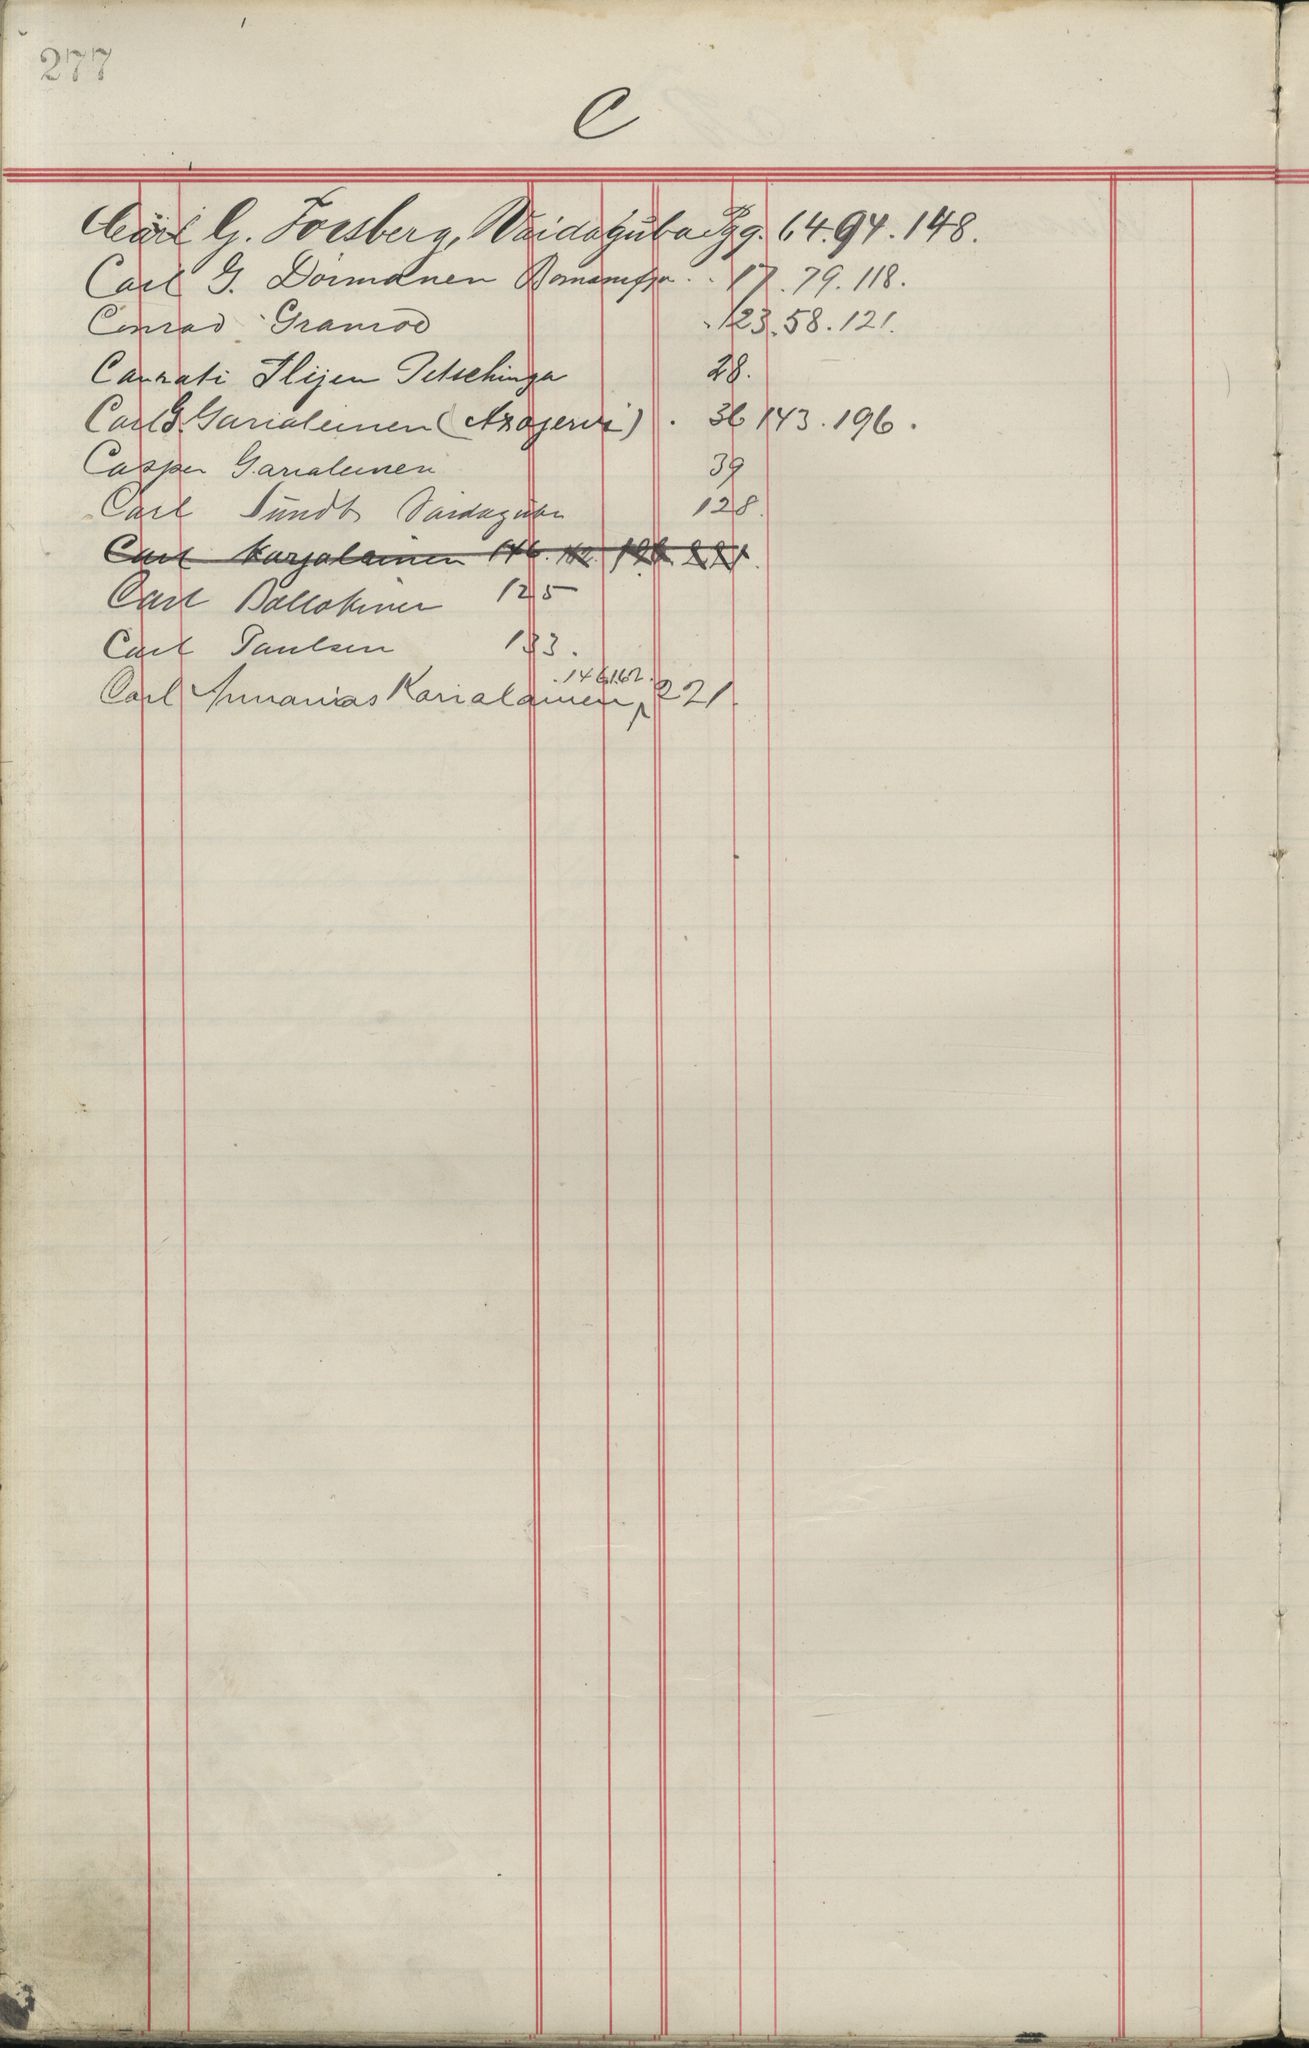 277
C
Carl G. Forsberg, Vaidaguba Pgg. 64. 94. 148.
Carl G. Dormanen Bomansfjo.. 17. 79. 118.
Conrad Granrod . 123. 58. 121.
Canrati Ilijen Petschinga 28.
Carl G. Garialeinen (Axajervi) . 36 143. 196.
Casper Garialeinen 39
Carl Sundt Vaidaguba 128.
Carl Karjalainen 146. 162. 196 221.
Carl 125
Carl Paulsen 133.
.146.162.
Carl Annanias Karialainen 221.